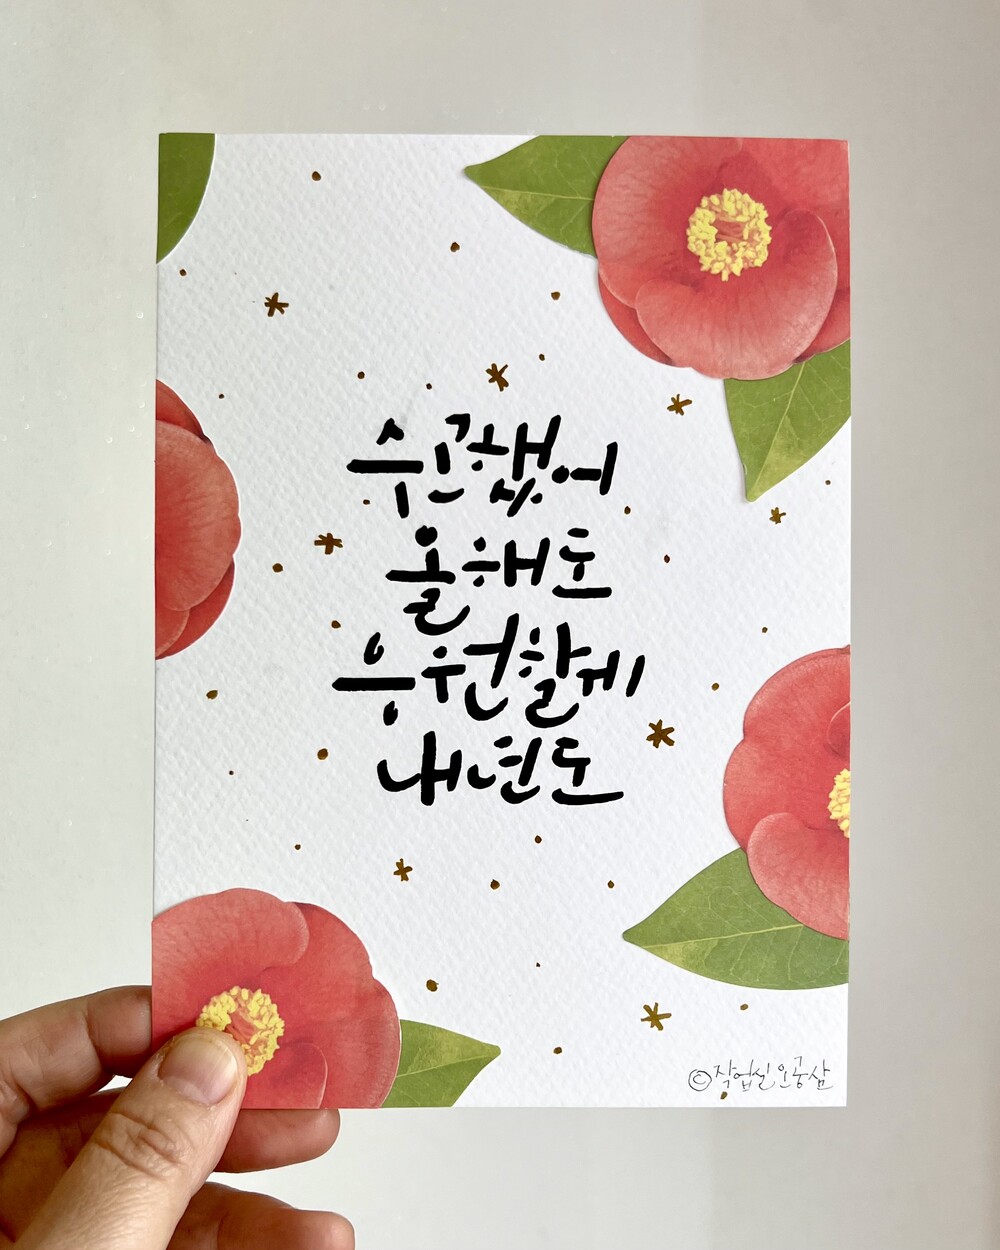 수고했어
올해도
응원할게
내년도
©작업실오공삼